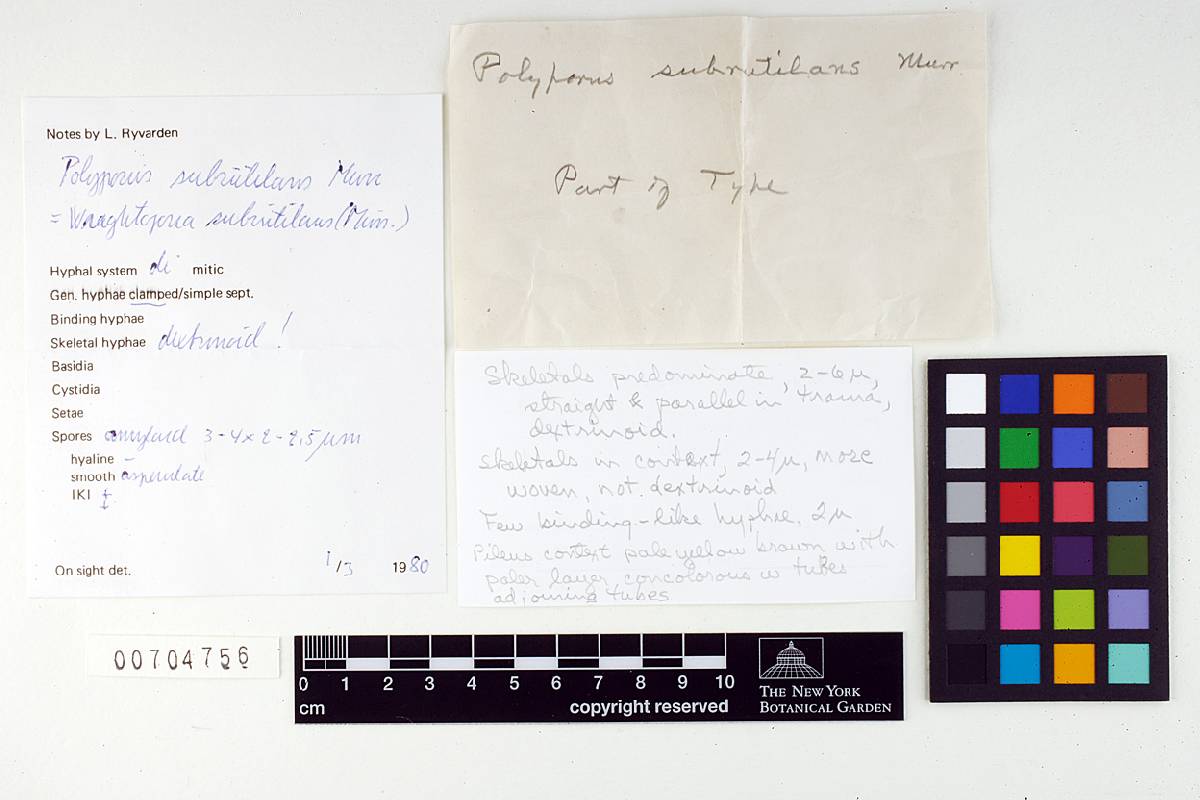 Polyporus subrutilans Murr.
Part of Type
Notes by L. Ryvarden
Polyporus subrutilans Murr
= Wrightoporia subrutilans (Murr.)
Hyphal system di mitic
Gen. hyphae clamped/simple sept.
Binding hyphae
Skeletal hyphae dextrinoid !
Basidia
Cystidia
Setae
Spores amyloid 3-4 x 2-2,5 µm
hyaline –
smooth asperulate
IKI +
On sight det. 1/3 1980
Skeletals predominate, 2-6 µ,
straight & parallel in trama,
dextrinoid.
Skeletals in context, 2-4 µ, more
woven, not dextrinoid
Few binding-like hyphae. 2 µ
Pileus context pale yellow brown with
paler layer concolorous w tubes
adjoining tubes
00704756
0 1 2 3 4 5 6 7 8 9 10
cm
copyright reserved
THE NEW YORK
BOTANICAL GARDEN